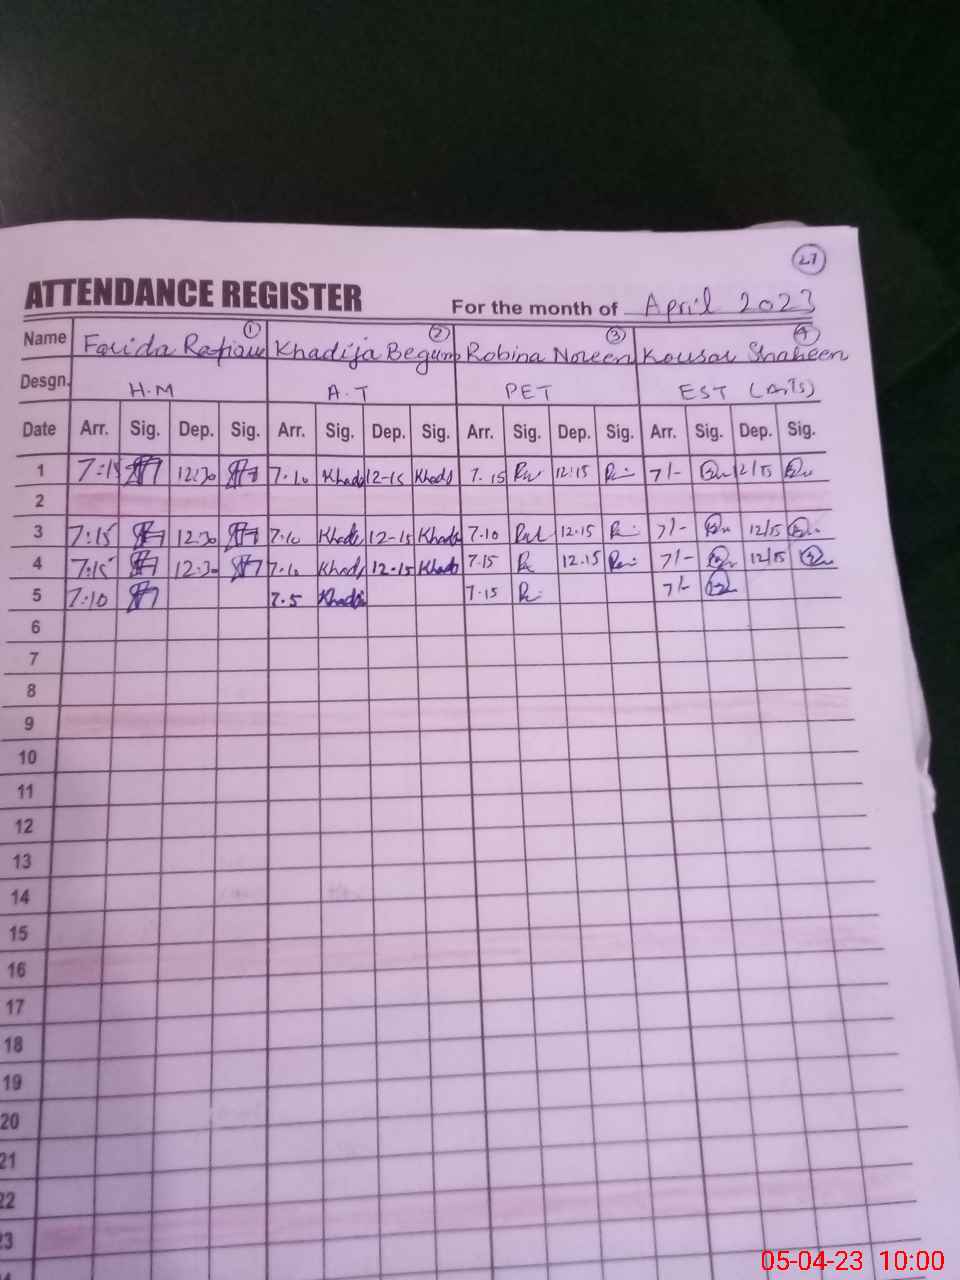 27
ATTENDANCE REGISTER For the month of April 2023
Name Farida 1 Khadija Begum 2 Robina Noreen 3 Kousar Shaheen 4
Desgn. H.M A.T PET EST (Arts)
Date Arr. Sig. Dep. Sig. Arr. Sig. Dep. Sig. Arr. Sig. Dep. Sig. Arr. Sig. Dep. Sig.
1 7:15 12:30 7.10 Khad 12-15 Khad 7.15 12:15 7/- 12/15
2
3 7:15 12:30 7.10 Khad 12-15 Khad 7.10 12.15 7/- 12/15
4 7:15 12:30 7.10 Khad 12-15 Khad 7.15 12.15 7/- 12/15
5 7:10 7.5 Khad 7.15 7/-
6
7
8
9
10
11
12
13
14
15
16
17
18
19
20
21
22
23
05-04-23 10:00